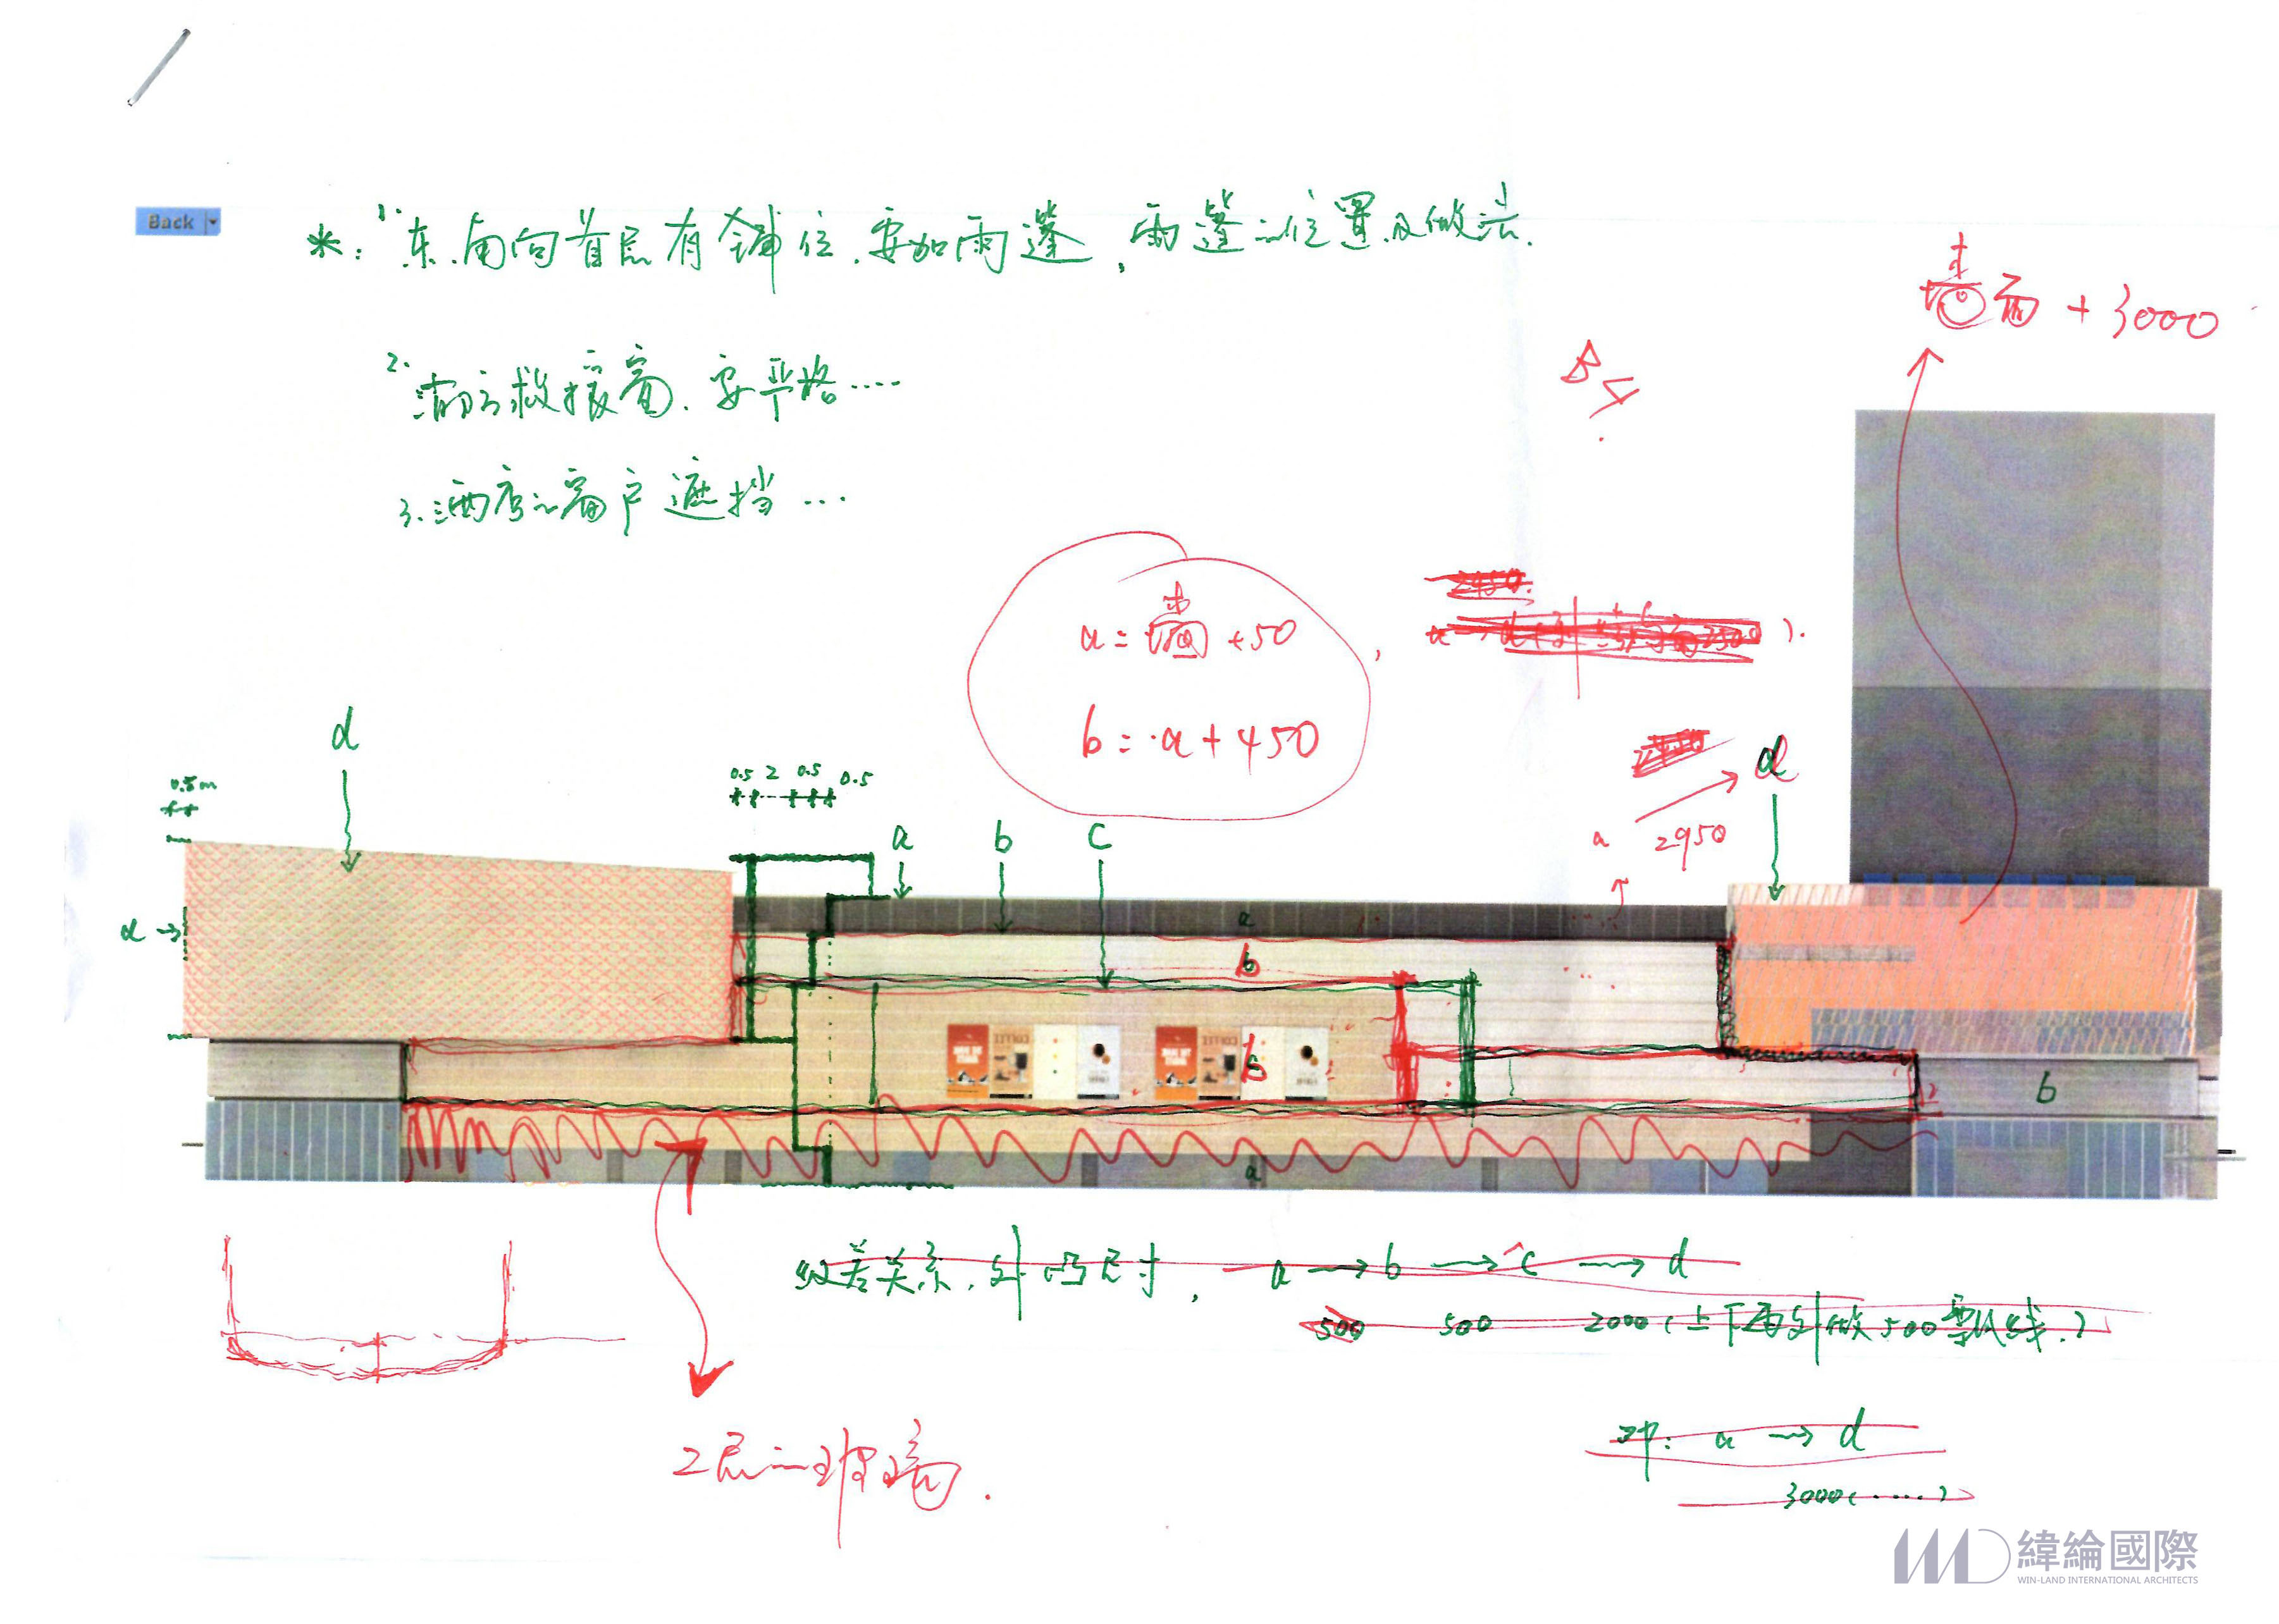 Back
*: 1. 东.南向首层有铺位.要加雨篷,雨篷的位置及做法.
2. 消防救援窗.要严格....
3. 酒店的窗户遮挡...
墙面 + 3000
a = 墙面 + 50
b = a + 450
2950
d
0.5 2 0.5 0.5
a
b
c
d
a
2950
d
a
b
b
b
a
级差关系.外凸尺寸, a → b → c → d
500 500 2000 (上下面外做500
即: a → d
3000(.....)
2层的玻璃.
緯綸國際
WIN-LAND INTERNATIONAL ARCHITECTS